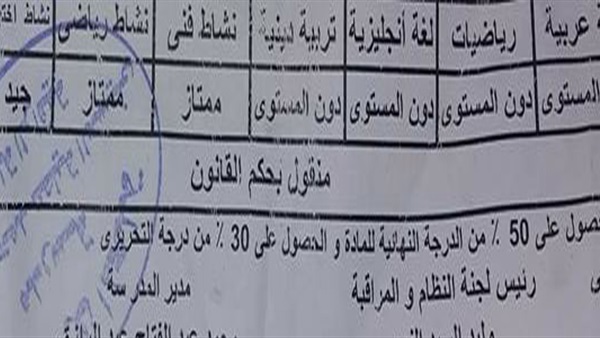 عربية رياضيات لغة أنجليزية تربية دينية نشاط فنى نشاط رياضى نشاط
المستوى دون المستوى دون المستوى دون المستوى ممتاز ممتاز جيد
منقول بحكم القانون
على 50 ٪ من الدرجة النهائية للمادة و الحصول على 30 ٪ من درجة التحريرى
رئيس لجنة النظام و المراقبة مدير المدرسة
عبد الفتاح عبد